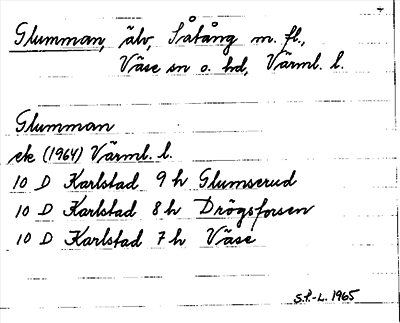 Glumman, älv, Såtång m. fl.,
Väse sn o. hd, Värml. l.
Glumman
ek (1964) Värml. l.
10 D Karlstad 9 h Glumserud
10 D Karlstad 8 h Drögsforsen
10 D Karlstad 7 h Väse
S.F.-L. 1965